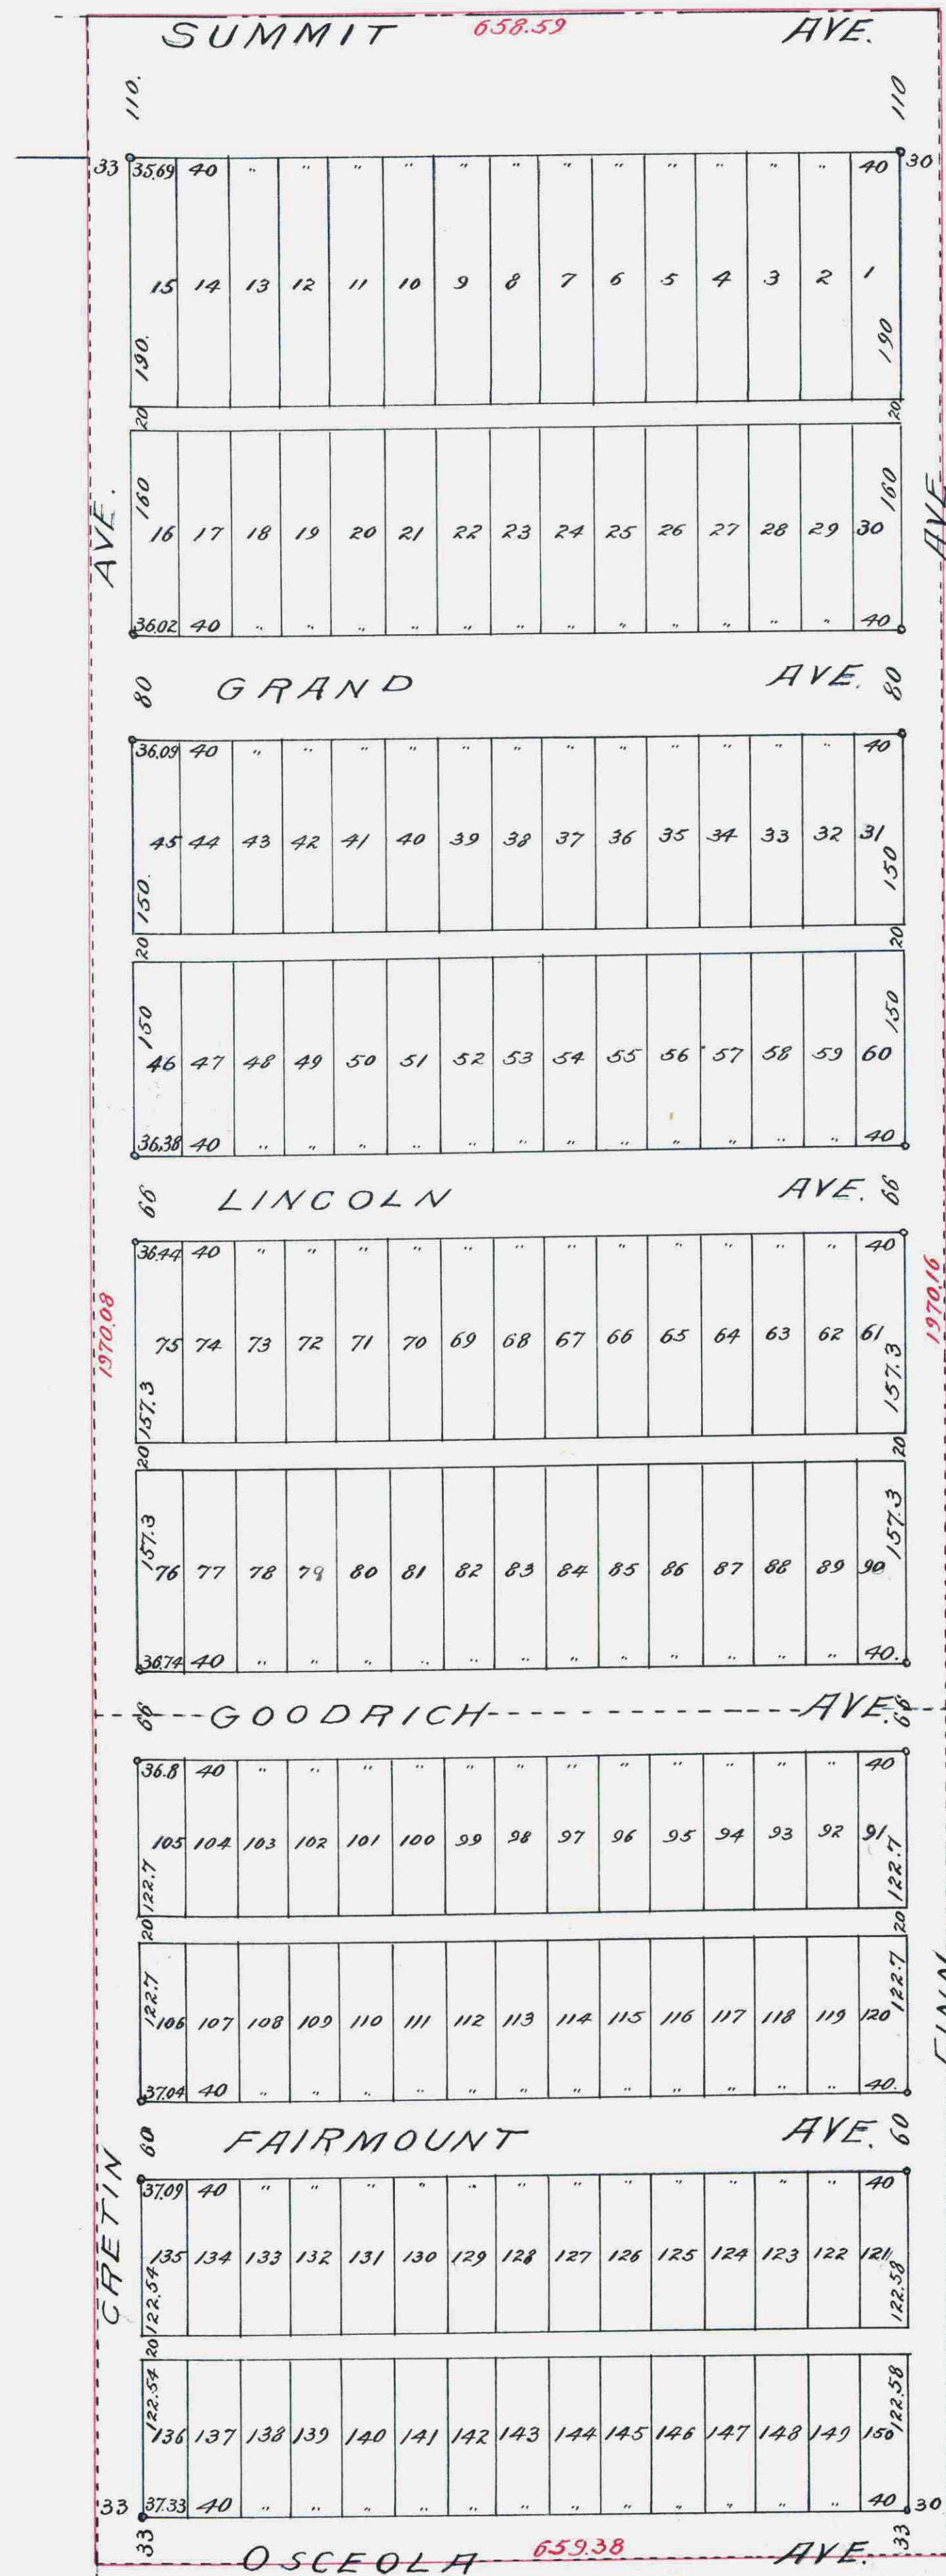 SUMMIT 658.59 AVE.
110. 110
33 35.69 40 " " " " " " " " " " " " 40 30
15 14 13 12 11 10 9 8 7 6 5 4 3 2 1
190. 190
20 20
160 160
AVE. AVE
16 17 18 19 20 21 22 23 24 25 26 27 28 29 30
36.02 40 " " " " " " " " " " " " 40
80 GRAND AVE. 80
36.09 40 " " " " " " " " " " " " 40
45 44 43 42 41 40 39 38 37 36 35 34 33 32 31
150. 150
20 20
150 150
46 47 48 49 50 51 52 53 54 55 56 57 58 59 60
36.38 40 " " " " " " " " " " " " 40
66 LINCOLN AVE. 66
36.44 40 " " " " " " " " " " " " 40
1970.08 1970.16
75 74 73 72 71 70 69 68 67 66 65 64 63 62 61
157.3 157.3
20 20
157.3 157.3
76 77 78 79 80 81 82 83 84 85 86 87 88 89 90
36.74 40 " " " " " " " " " " " " 40.
66 GOODRICH AVE. 66
36.8 40 " " " " " " " " " " " " 40
105 104 103 102 101 100 99 98 97 96 95 94 93 92 91
122.7 122.7
20 20
122.7 122.7
106 107 108 109 110 111 112 113 114 115 116 117 118 119 120
FINN
37.04 40 " " " " " " " " " " " " 40.
60 FAIRMOUNT AVE. 60
37.09 40 " " " " " " " " " " " " 40
CRETIN
135 134 133 132 131 130 129 128 127 126 125 124 123 122 121
122.54 122.58
20
122.54 122.58
136 137 138 139 140 141 142 143 144 145 146 147 148 149 150
33 37.33 40 " " " " " " " " " " " " 40 30
33 33
OSCEOLA 659.38 AVE.